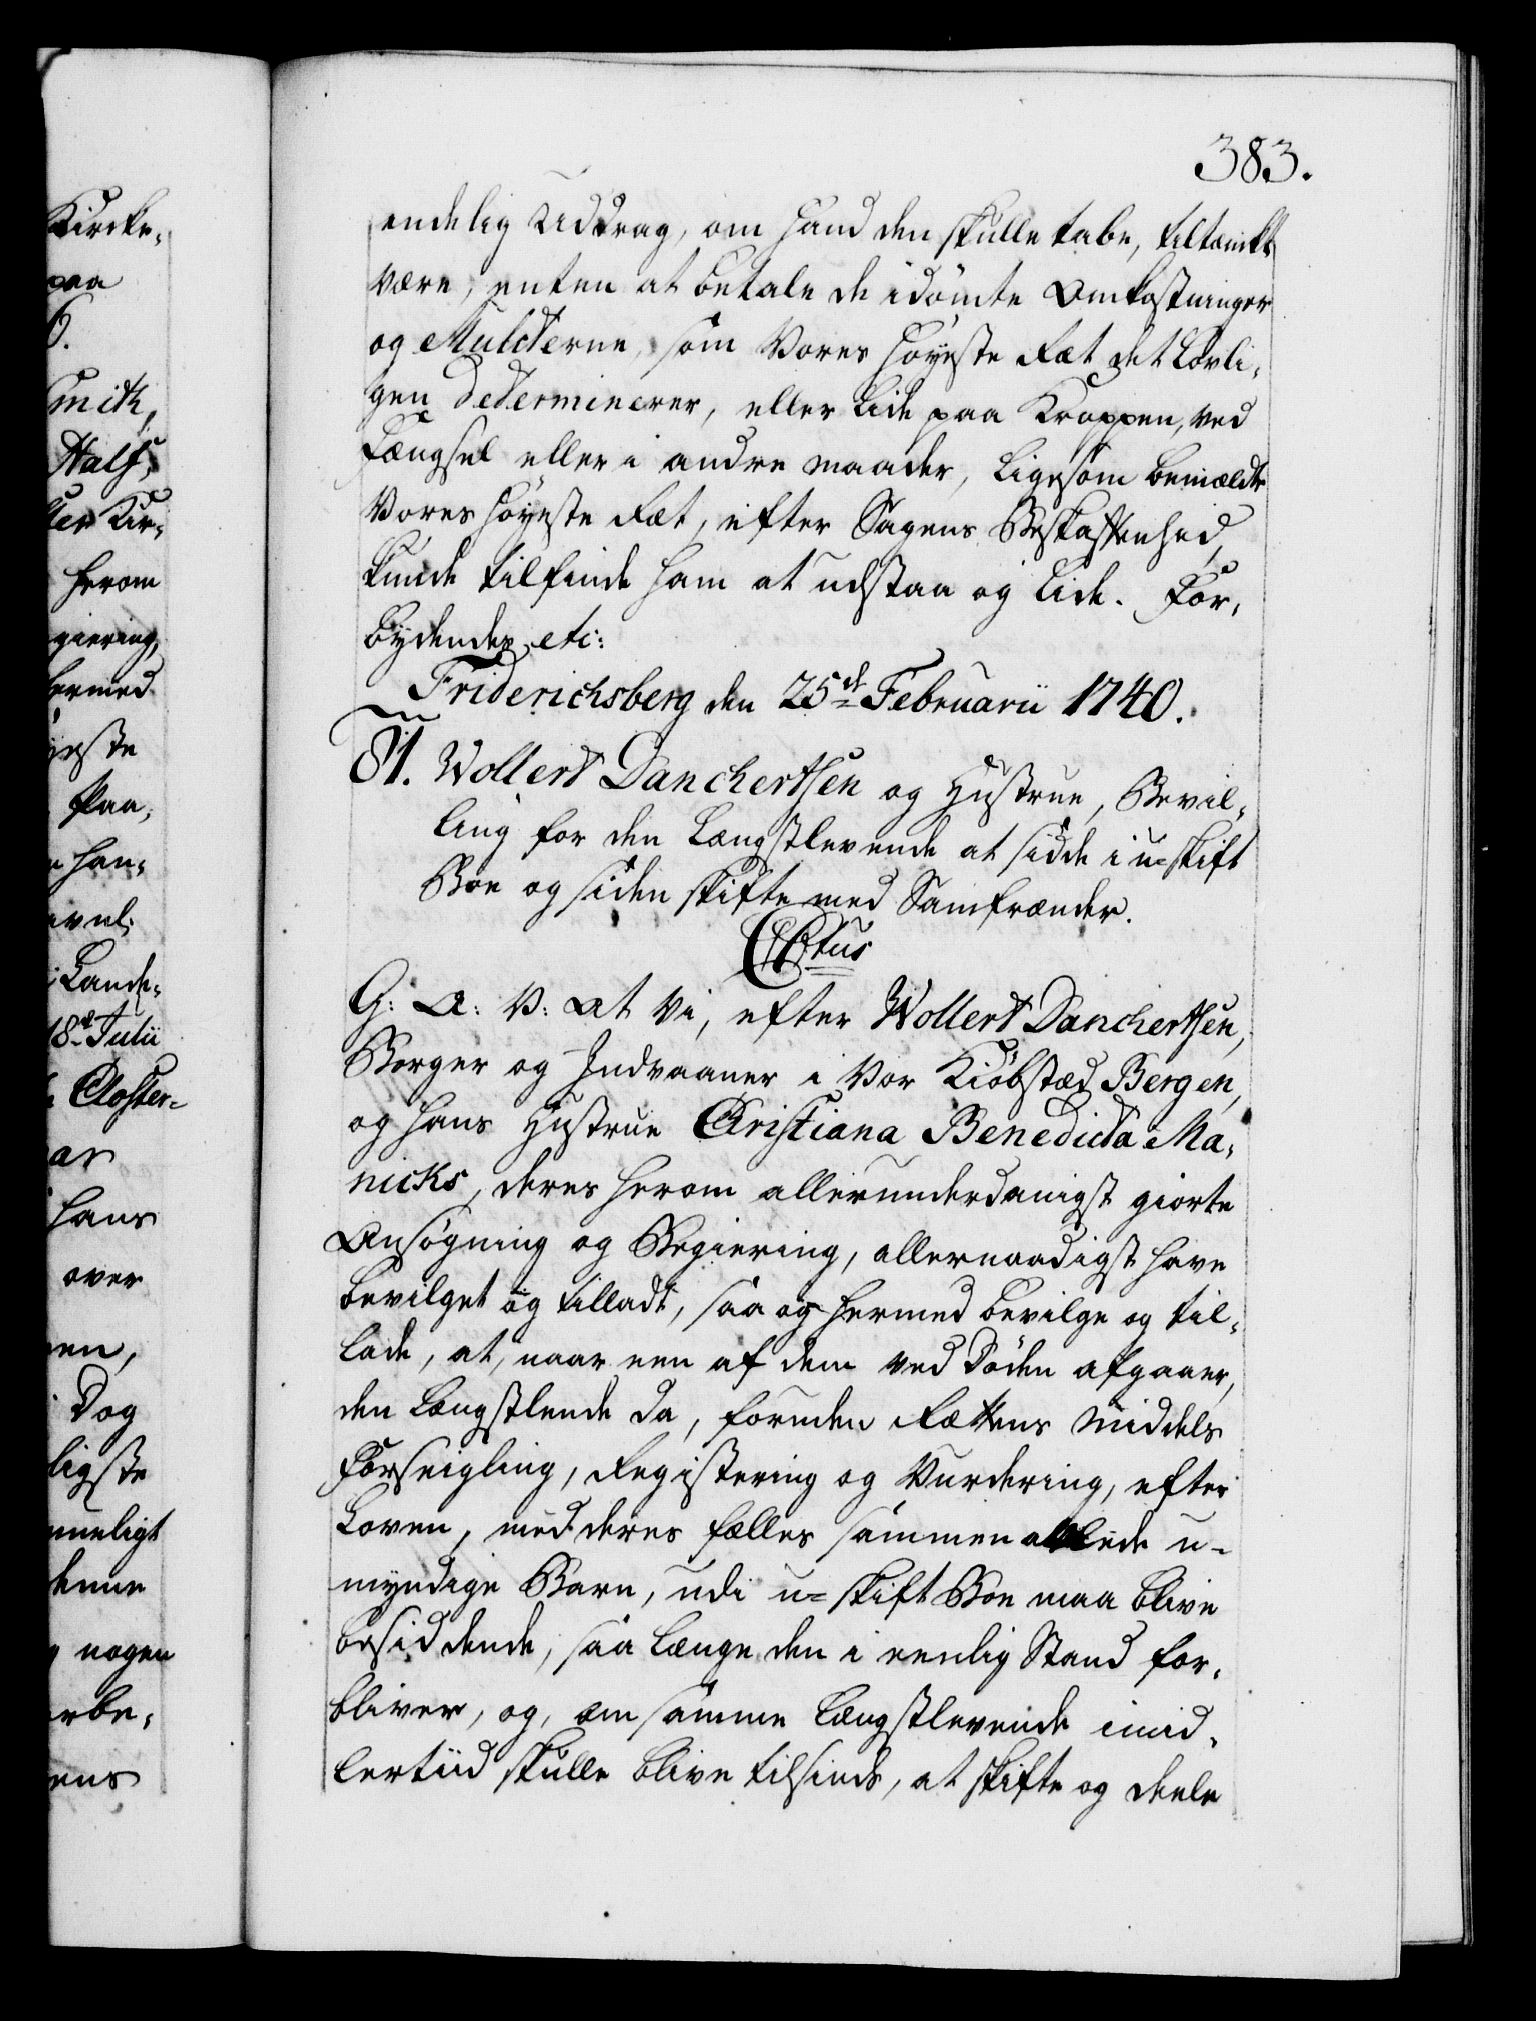 383.
endelig Uddrag, om hand den skulle tabe, tiltænkt
være, enten at betale de idömte Omkostninger
og Mulcterne, som Vores Höyeste Ræt det lovli,
gen determinerer, eller lide paa Kroppen, ved
Fængsel eller i andre maader, ligesom bemældte
Vores Höyeste Ræt, efter Sagens Beskaffenhed,
kunde tilfinde ham at udstaa og lide. For,
bydendes etc:
Friderichsberg den 25de Februarii 1740.
81. Wollert Danchertsen og Hustrue, Bevil,
ling for den Længstlevende at sidde i u-skift
Boe og siden skifte med Samfrænder.
CC6tus
G: A: V: At Vi, efter Wollert Danchertsen,
Borger og Indvaaner i Vor Kiöbstæd Bergen,
og hans Hustrue Christiana Benedicta Ma,
nicks, deres herom allerunderdanigst giorte
Ansögning og Begiering, allernaadigst have
bevilget og tilladt, saa og hermed bevilge og til,
lade, at, naar een af dem ved Döden afgaaer,
den Længstlende da, foruden Rettens Middels
Forseigling, Registering og Vurdering, efter
Loven, med deres fælles sammen avlede u-
myndige Barn, udi u-skift Boe maa blive
besiddende, saa længe den i eenlig Stand for,
bliver, og, om samme Længstlevende imid,
lertiid skulle blive tilsinds, at skifte og deele
Kircke,
paa
6.
Smith,
Half,
ter Kir,
herom
giering,
hermed
yeste
paa,
han,
avel,
Lands,
18de Julii
Closter-
ar
hans
over
en,
Dog
ligste
meligt
denne
nogen
rbe,
ens